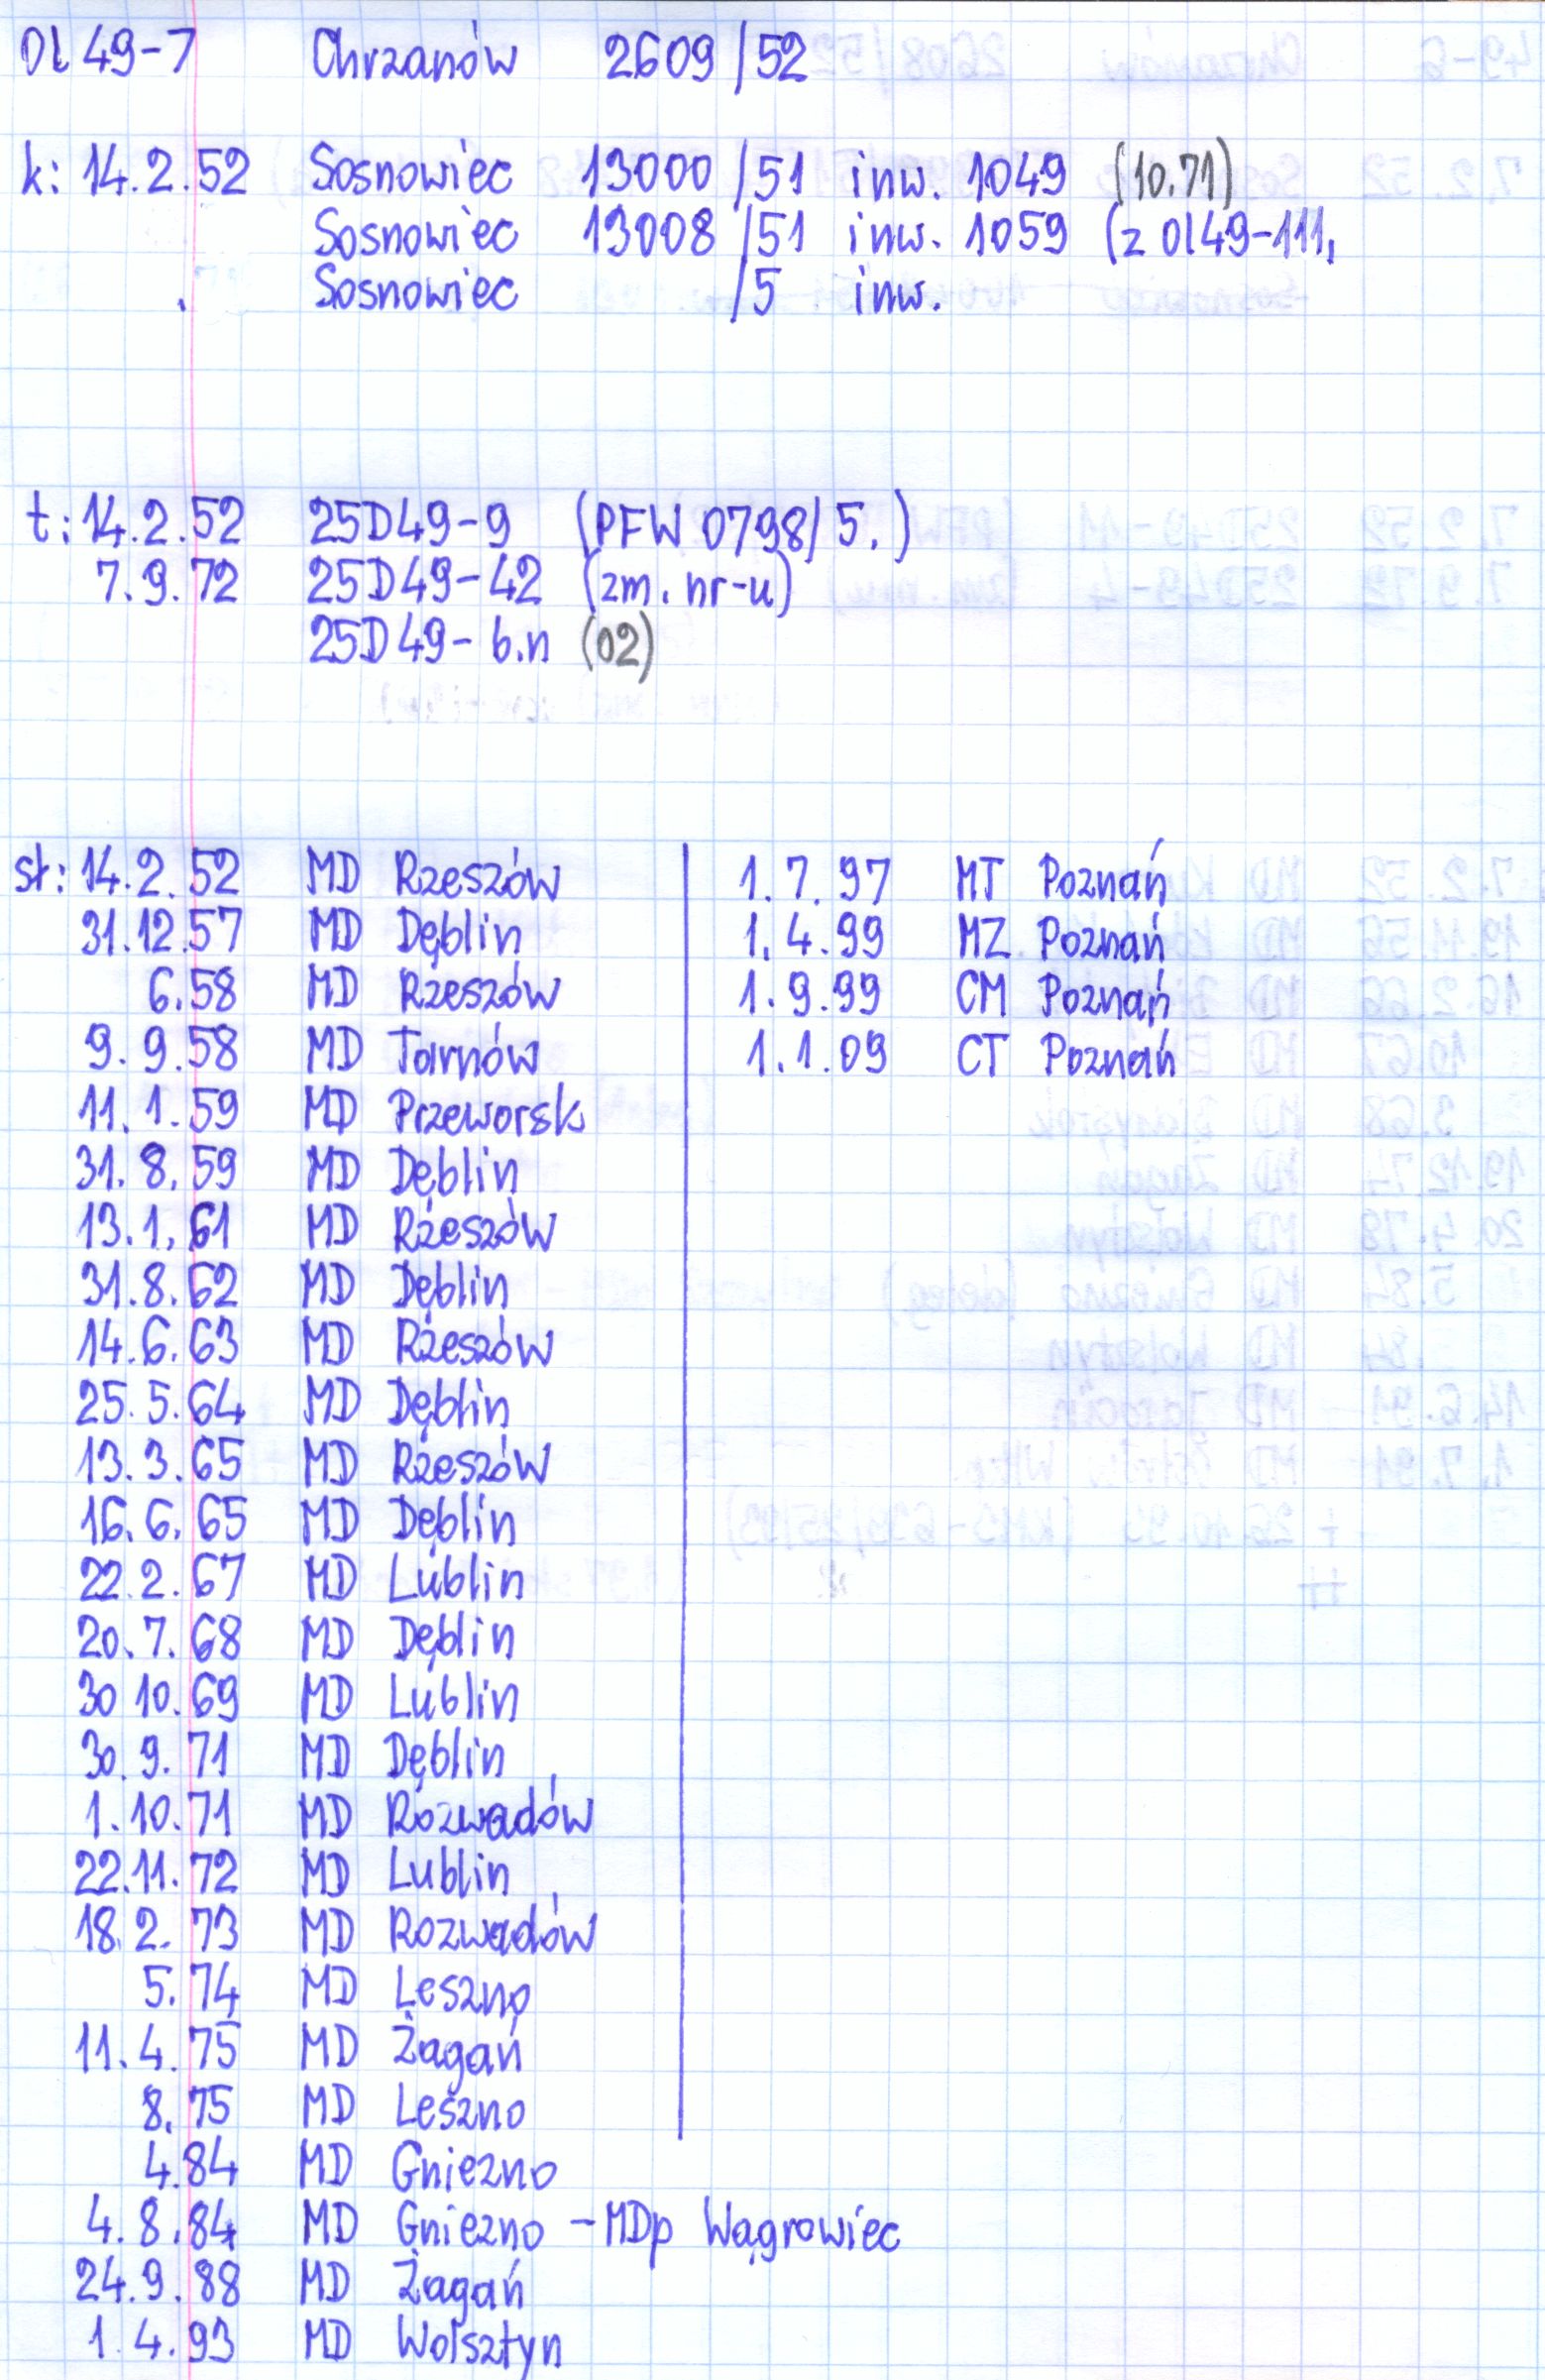 Ol 49-7 Chrzanów 2609/52
k: 14.2.52 Sosnowiec 13000/51 inw. 1049 (10.71)
Sosnowiec 13008/51 inw. 1059 (z Ol49-111,
Sosnowiec /5 inw.
t: 14.2.52 25D49-9 (PFW 0798/5. )
7.9.72 25D49-42 (zm. nr-u)
25D49-b.n (02)
st: 14.2.52 MD Rzeszów
31.12.57 MD Dęblin
6.58 MD Rzeszów
9.9.58 MD Tarnów
11.1.59 MD Przeworsk
31.8.59 MD Dęblin
13.1.61 MD Rzeszów
31.8.62 MD Dęblin
14.6.63 MD Rzeszów
25.5.64 MD Dęblin
13.3.65 MD Rzeszów
16.6.65 MD Dęblin
22.2.67 MD Lublin
20.7.68 MD Dęblin
30 10.69 MD Lublin
30.9.71 MD Dęblin
1.10.71 MD Rozwadów
22.11.72 MD Lublin
18.2.73 MD Rozwadów
5.74 MD Leszno
11.4.75 MD Żagań
8.75 MD Leszno
4.84 MD Gniezno
4.8.84 MD Gniezno - MDp Wągrowiec
24.9.88 MD Żagań
1.4.93 MD Wolsztyn
1.7.97 MT Poznań
1.4.99 MZ Poznań
1.9.99 CM Poznań
1.1.09 CT Poznań